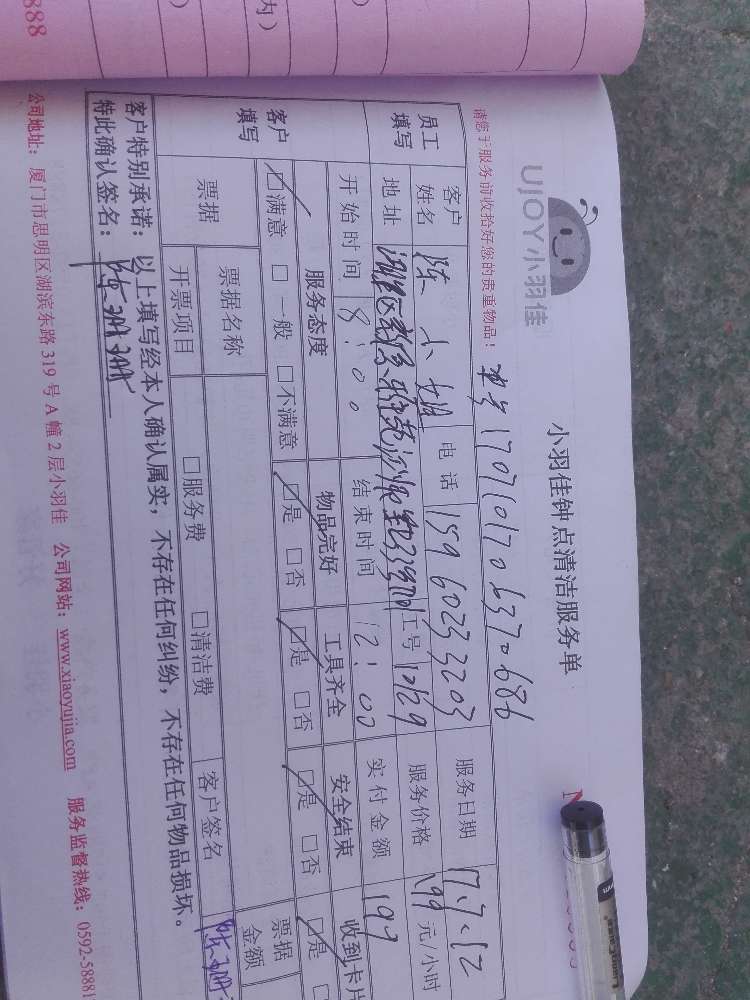 888
内）
（
）
UJOY小羽佳
小羽佳钟点清洁服务单
请您于服务前收拾好您的贵重物品！
1707101706370686
员工填写
客户姓名 陈小姐 电话 15960233203 服务日期 17.7.12
地址 工号 10129 服务价格 199 元/小时
开始时间 8:00 结束时间 12:00 实付金额 199
客户填写
服务态度 物品完好 工具齐全 安全结束 收到卡片
☑满意 □一般 □不满意 ☑是 □否 ☑是 □否 ☑是 □否 ☑是
票据 票据名称 票据金额
开票项目 □服务费 □清洁费 客户签名
客户特别承诺：以上填写经本人确认属实，不存在任何纠纷，不存在任何物品损坏。
特此确认签名：
公司地址：厦门市思明区湖滨东路319号A幢2层小羽佳 公司网站：www.xiaoyujia.com 服务监督热线：0592-58881